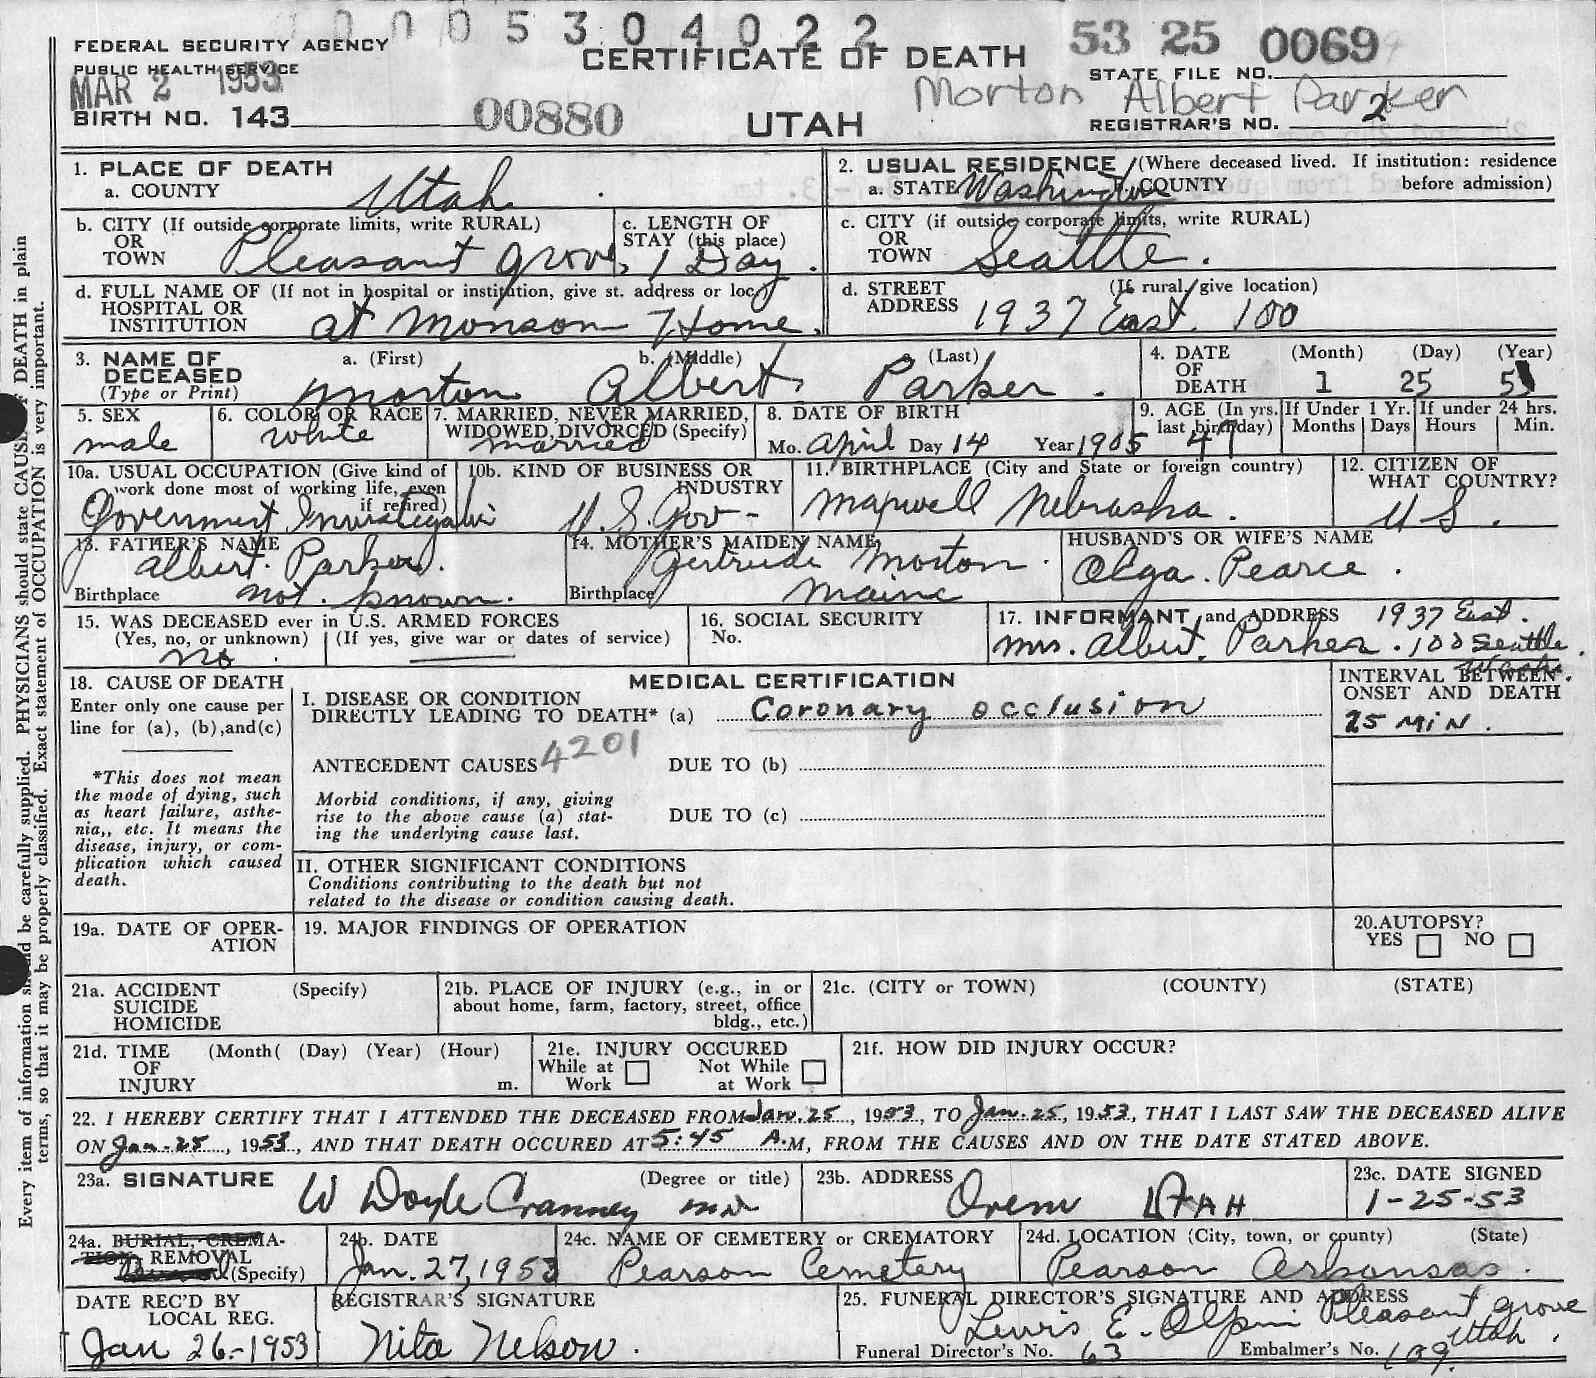 0 0 0 5 3 0 4 0 2 2
FEDERAL SECURITY AGENCY
PUBLIC HEALTH SERVICE
MAR 2 1953
BIRTH NO. 143
00880
CERTIFICATE OF DEATH
UTAH
53 25 0069
STATE FILE NO.
Morton Albert Parker
REGISTRAR'S NO. 2
1. PLACE OF DEATH
a. COUNTY Utah
2. USUAL RESIDENCE (Where deceased lived. If institution: residence
a. STATE Washington b. COUNTY before admission)
b. CITY (If outside corporate limits, write RURAL)
OR
TOWN Pleasant Grove,
c. LENGTH OF
STAY (this place)
1 Day.
c. CITY (if outside corporate limits, write RURAL)
OR
TOWN Seattle.
d. FULL NAME OF (If not in hospital or institution, give st. address or loc.)
HOSPITAL OR
INSTITUTION at Monson Home,
d. STREET (If rural, give location)
ADDRESS 1937 East. 100
3. NAME OF
DECEASED
(Type or Print)
a. (First) b. (Middle) c. (Last)
Morton Albert Parker.
4. DATE
OF
DEATH
(Month) (Day) (Year)
1 25 53
5. SEX
male
6. COLOR OR RACE
white
7. MARRIED, NEVER MARRIED,
WIDOWED, DIVORCED (Specify)
married
8. DATE OF BIRTH
Mo. April Day 14 Year 1905
9. AGE (In yrs.
last birthday) 47
If Under 1 Yr.
Months Days
If under 24 hrs.
Hours Min.
10a. USUAL OCCUPATION (Give kind of
work done most of working life, even
if retired)
Government
10b. KIND OF BUSINESS OR
INDUSTRY
U.S. Gov-
11. BIRTHPLACE (City and State or foreign country)
Maxwell Nebraska.
12. CITIZEN OF
WHAT COUNTRY?
U S.
13. FATHER'S NAME
Albert Parker.
Birthplace not. known.
14. MOTHER'S MAIDEN NAME
Gertrude Morton.
Birthplace Maine
HUSBAND'S OR WIFE'S NAME
Olga. Pearce.
15. WAS DECEASED ever in U.S. ARMED FORCES
(Yes, no, or unknown) (If yes, give war or dates of service)
no.
16. SOCIAL SECURITY
No.
17. INFORMANT and ADDRESS 1937 East.
Mrs. Albert. Parker. 100 Seattle.
Wash.
18. CAUSE OF DEATH
Enter only one cause per
line for (a), (b),and(c)
*This does not mean
the mode of dying, such
as heart failure, asthe-
nia,, etc. It means the
disease, injury, or com-
plication which caused
death.
MEDICAL CERTIFICATION
I. DISEASE OR CONDITION
DIRECTLY LEADING TO DEATH* (a) Coronary occlusion
4201
ANTECEDENT CAUSES DUE TO (b)
Morbid conditions, if any, giving
rise to the above cause (a) stat-
ing the underlying cause last.
DUE TO (c)
II. OTHER SIGNIFICANT CONDITIONS
Conditions contributing to the death but not
related to the disease or condition causing death.
INTERVAL BETWEEN
ONSET AND DEATH
25 MIN.
19a. DATE OF OPER-
ATION
19. MAJOR FINDINGS OF OPERATION
20.AUTOPSY?
YES NO
21a. ACCIDENT (Specify)
SUICIDE
HOMICIDE
21b. PLACE OF INJURY (e.g., in or
about home, farm, factory, street, office
bldg., etc.)
21c. (CITY or TOWN) (COUNTY) (STATE)
21d. TIME (Month( (Day) (Year) (Hour)
OF
INJURY m.
21e. INJURY OCCURED
While at Work
Not While at Work
21f. HOW DID INJURY OCCUR?
22. I HEREBY CERTIFY THAT I ATTENDED THE DECEASED FROM Jan. 25, 1953, TO Jan. 25, 1953, THAT I LAST SAW THE DECEASED ALIVE
ON Jan. 25, 1953, AND THAT DEATH OCCURED AT 5:45 A.M, FROM THE CAUSES AND ON THE DATE STATED ABOVE.
23a. SIGNATURE (Degree or title)
W Doyle Cranney MD
23b. ADDRESS
Orem UTAH
23c. DATE SIGNED
1-25-53
24a. BURIAL, CREMA-
TION, REMOVAL
(Specify)
24b. DATE
Jan. 27, 1953
24c. NAME OF CEMETERY or CREMATORY
Pearson Cemetery
24d. LOCATION (City, town, or county) (State)
Pearson Arkansas.
DATE REC'D BY
LOCAL REG.
Jan 26-1953
REGISTRAR'S SIGNATURE
Nita Nelson.
25. FUNERAL DIRECTOR'S SIGNATURE AND ADDRESS
Lewis E. Olpin Pleasant Grove
Utah.
Funeral Director's No. 63 Embalmer's No. 109.
Every item of information should be carefully supplied. PHYSICIANS should state CAUSE OF DEATH in plain
terms, so that it may be properly classified. Exact statement of OCCUPATION is very important.